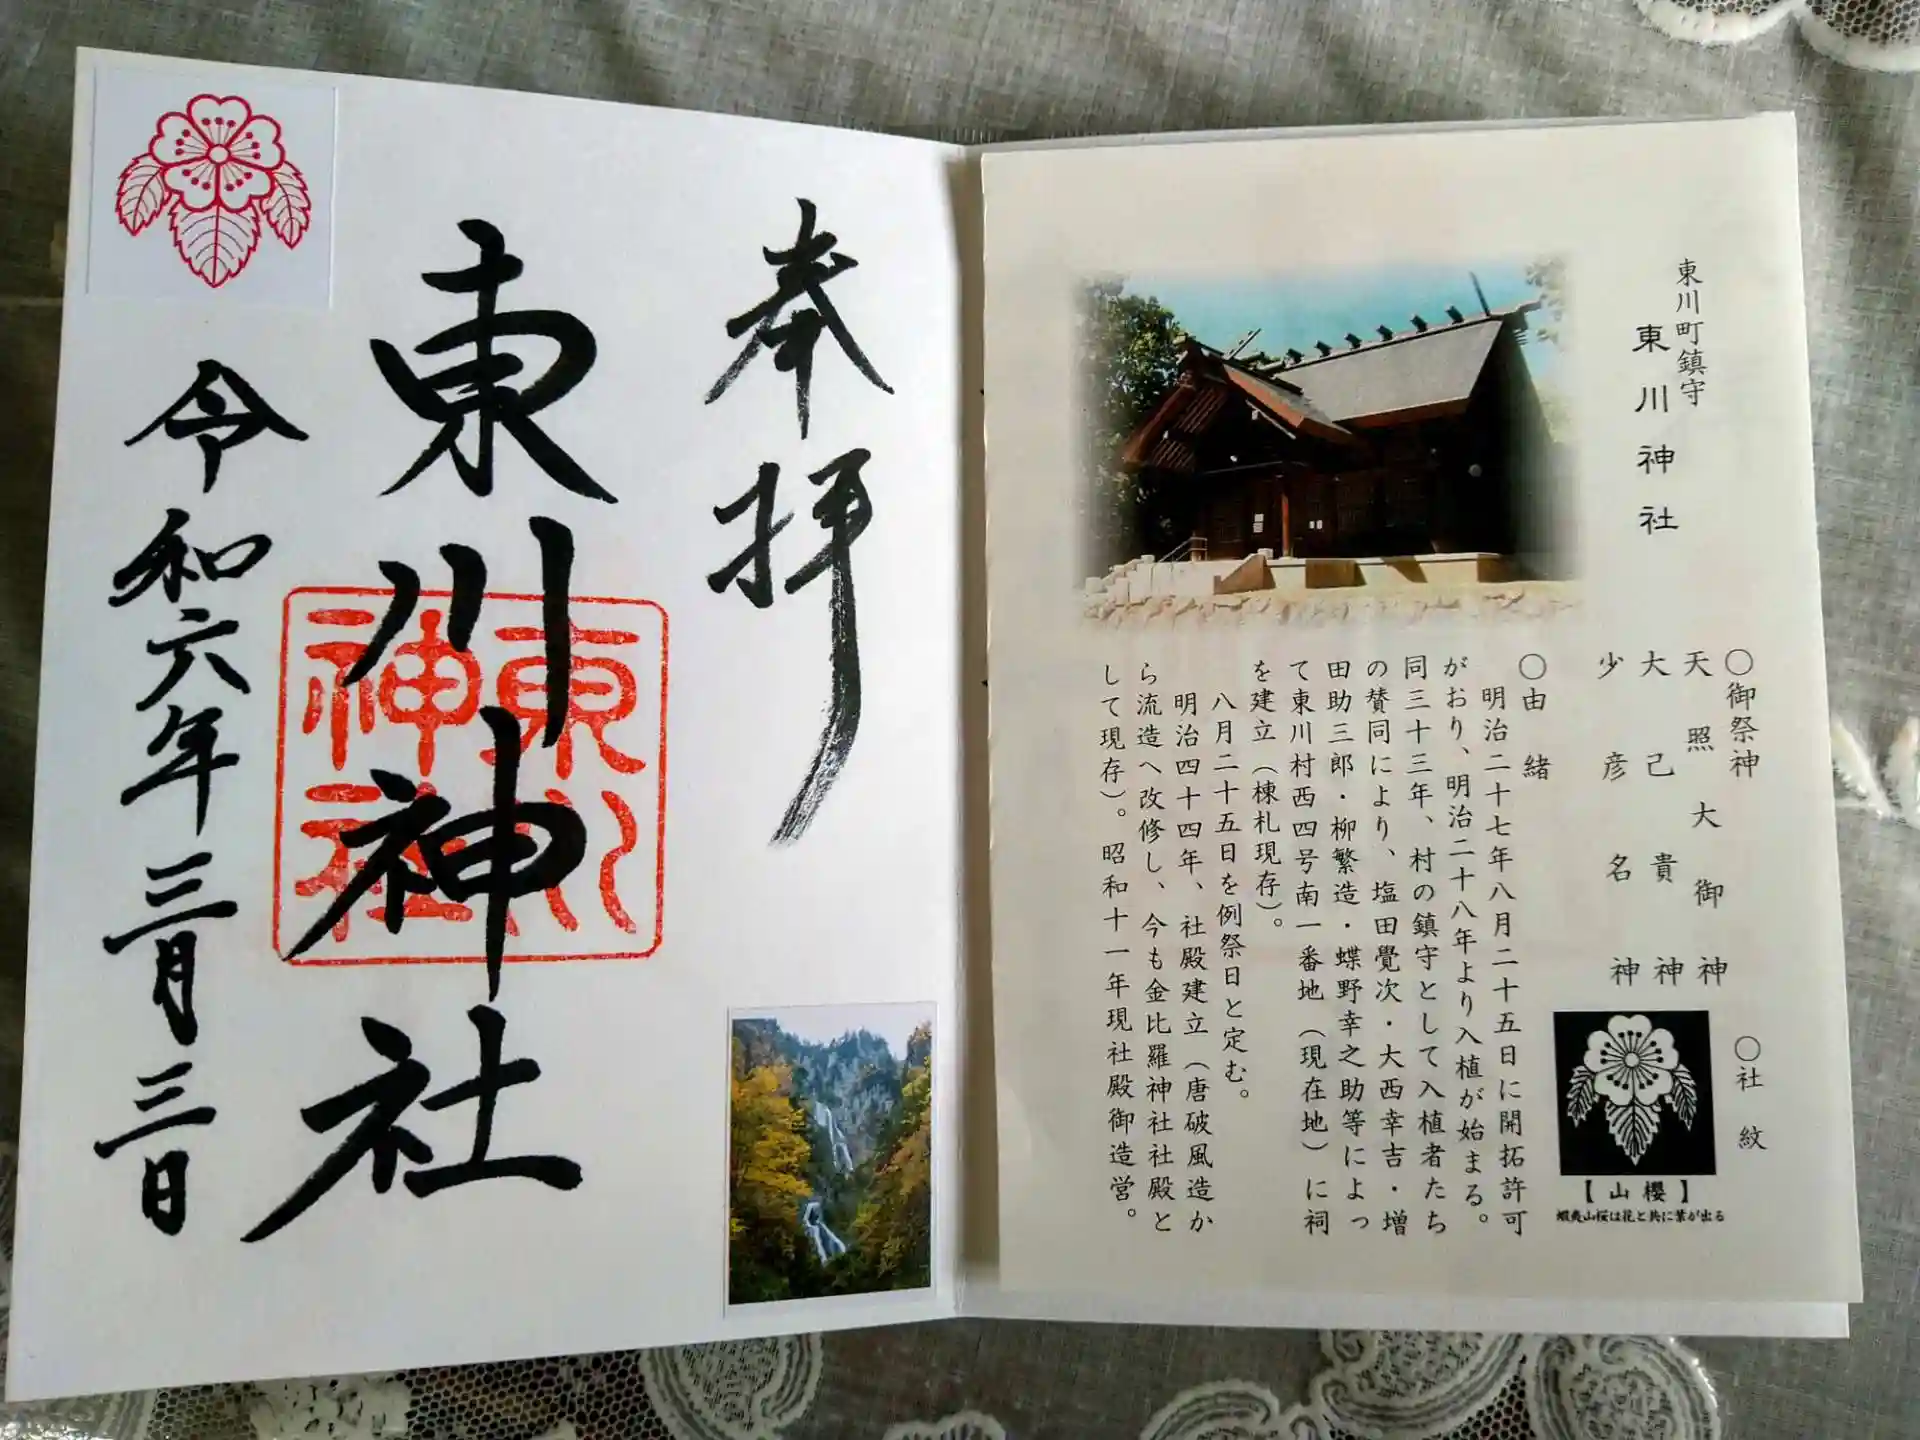 東川町鎮守
東川神社
〇御祭神
天照大御神
大己貴神
少彦名神
〇社紋
【山櫻】
蝦夷山桜は花と共に葉が出る
〇由緒
明治二十七年八月二十五日に開拓許可
がおり、明治二十八年より入植が始まる。
同三十三年、村の鎮守として入植者たち
の賛同により、塩田覺次・大西幸吉・増
田助三郎・柳繁造・蝶野幸之助等によっ
て東川村西四号南一番地（現在地）に祠
を建立（棟札現存）。
八月二十五日を例祭日と定む。
明治四十四年、社殿建立（唐破風造か
ら流造へ改修し、今も金比羅神社社殿と
して現存）。昭和十一年現社殿御造営。
奉拝
東川神社
東川
神社
令和六年三月三日